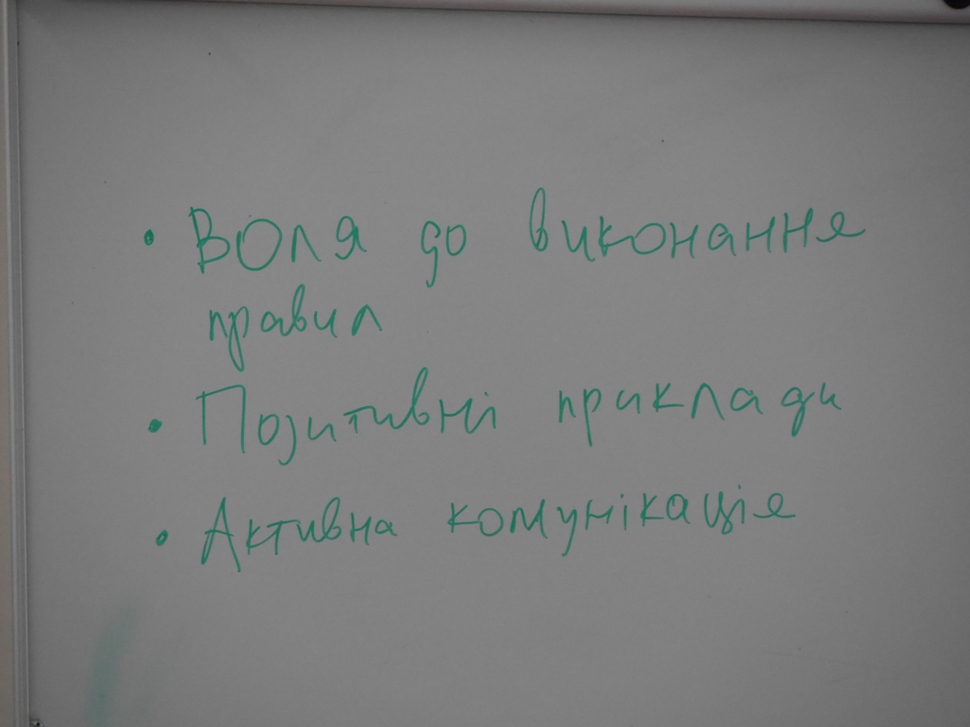 • Воля до виконання
правил
• Позитивні приклади
• Активна комунікація